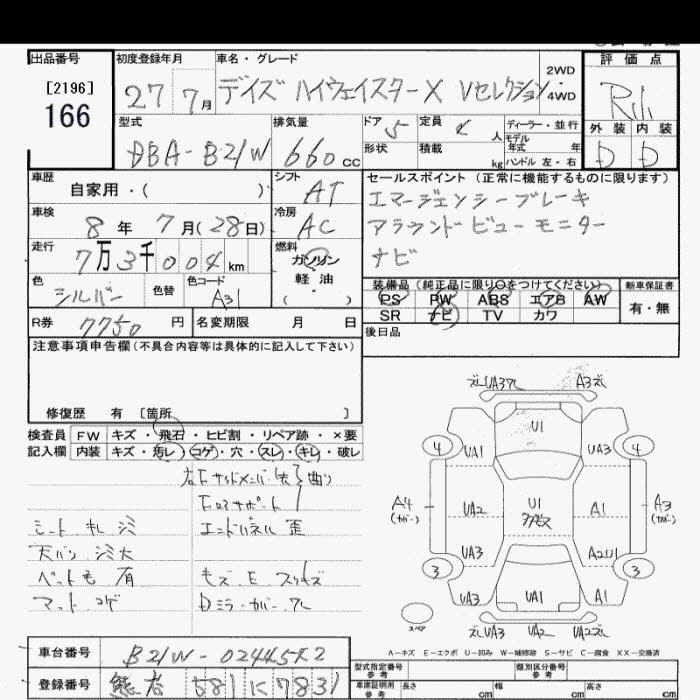 出品番号
[2196]
166
初度登録年月
27 7月
車名・グレード
デイズ ハイウェイスターX Vセレクション
2WD
・
4WD
評価点
外装 内装
D D
型式
DBA-B21W
排気量
660cc
ドア 5
定員 4人
ディーラー・並行
形状
積載 kg
モデル年式 年式
ハンドル 左・右
車歴
自家用・( )
シフト
AT
セールスポイント (正常に機能するものに限ります)
エマージェンシーブレーキ
アラウンドビューモニター
ナビ
車検
8年 7月(28日)
冷房
AC
走行
7万3千004km
燃料
ガソリン
軽油
( )
色
シルバー
色替
色コード
A31
装備品 (純正品に限り○をつけてください)
PS PW ABS エアB AW
SR ナビ TV カワ
新車保証書
有・無
R券 7750円
名変期限 月 日
後日品
注意事項申告欄(不具合内容等は具体的に記入して下さい)
修復歴 有 [箇所 ]
検査員
記入欄
FW キズ・飛石・ヒビ割・リペア跡・×要
内装 キズ・汚レ・コゲ・穴・スレ・キレ・破レ
シート 札 シミ
天バリ シミ大
ペット毛 有
マット コゲ
エンドパネル 歪
Dミラーカバー ズレ
UA3 A3
U1
4 UA1 UA3 4
A4
(カバー)
UA2 U1 A1
A3
(カバー)
UA3 A2U1
3 3
UA3 UA1 A1
UA3 UA2 UA2
スペア
A-キズ E-エクボ U-凹み W-補修跡 S-サビ C-腐食 XX-交換済
車台番号
B21W-0244582
登録番号
581 に 7831
型式指定番号
類別区分番号
車庫証明用参考
長さ cm
幅 cm
高さ cm